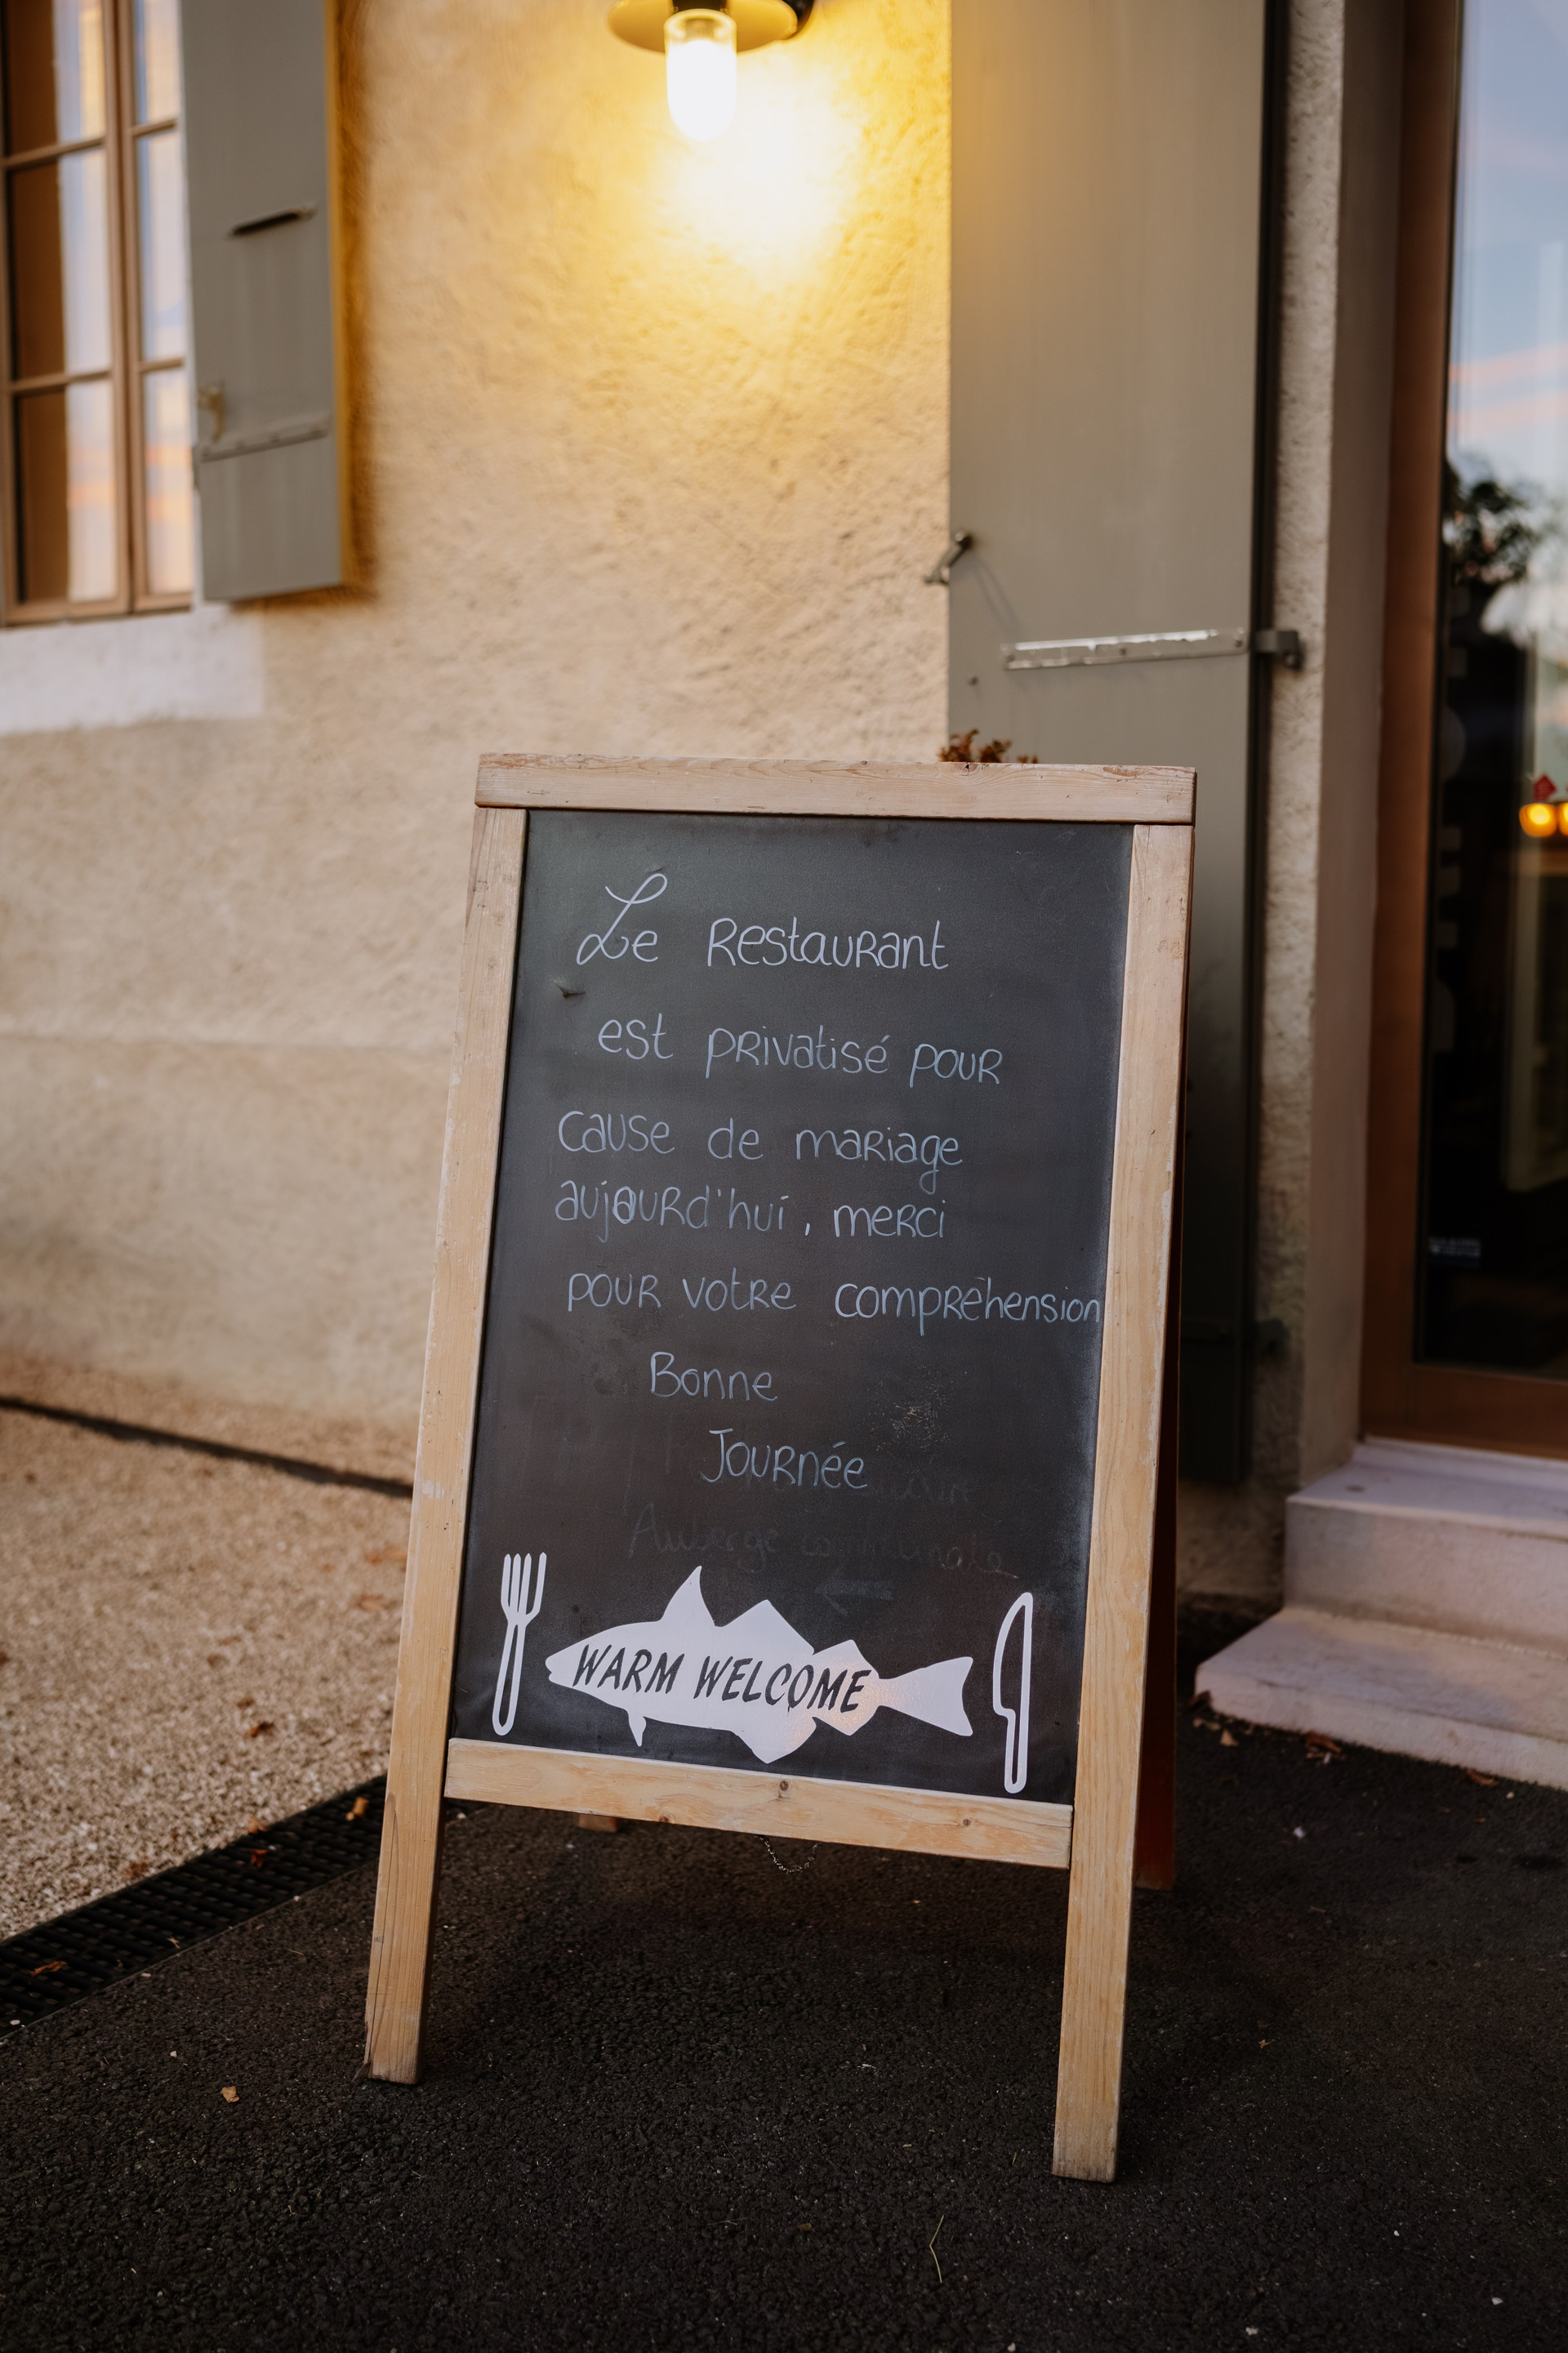 Le Restaurant
est privatisé pour
cause de mariage
aujourd'hui, merci
pour votre compréhension
Bonne
Journée
Auberge communale
WARM WELCOME